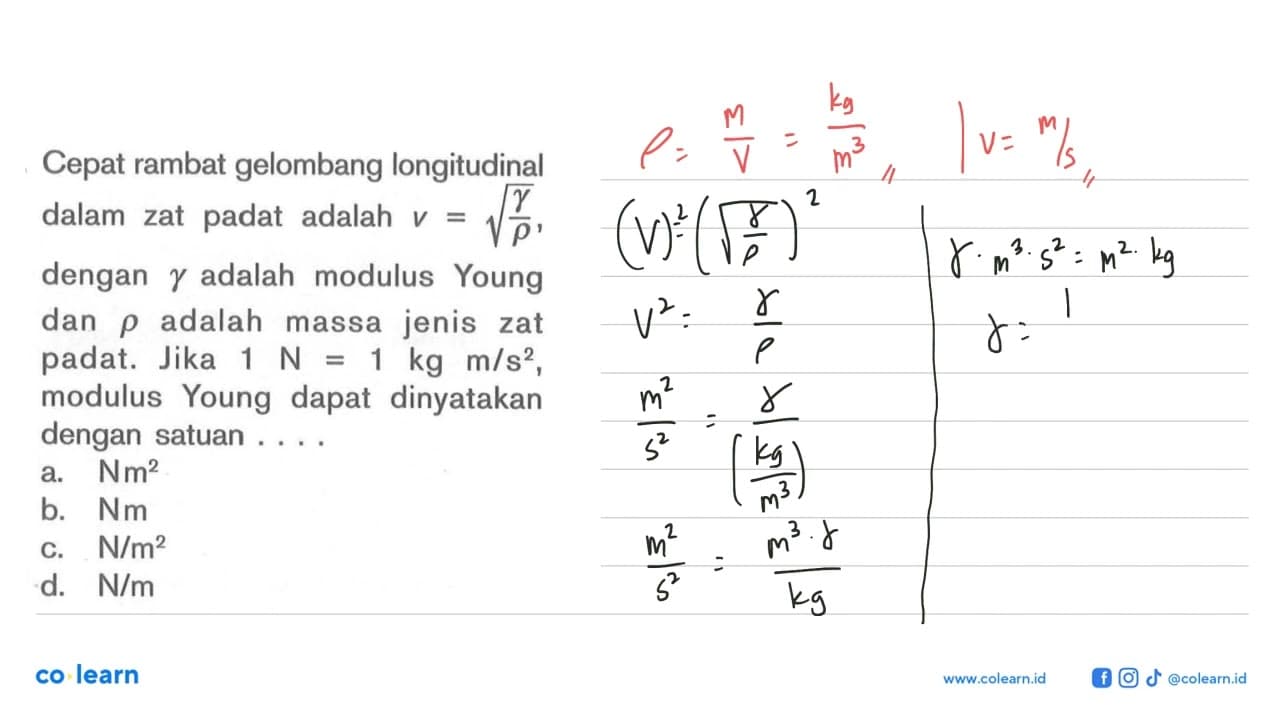 Cepat rambat gelombang longitudinal
dalam zat padat adalah v = √(γ/ρ),
dengan γ adalah modulus Young
dan ρ adalah massa jenis zat
padat. Jika 1 N = 1 kg m/s²,
modulus Young dapat dinyatakan
dengan satuan . . . .
a. Nm²
b. Nm
c. N/m²
d. N/m
ρ = M/V = kg/m³ ,, | v = m/s ,,
(V)² = (√(γ/ρ))²
V² = γ/ρ
m²/s² = γ/(kg/m³)
m²/s² = m³.γ/kg
γ. m³. s² = m². kg
γ = 1
co learn
www.colearn.id
@colearn.id